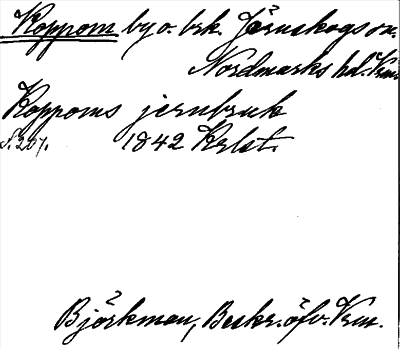 Koppom by o. brk. Järnskogs sn.
Nordmarks hd. Vrm.
Koppoms jernbruk
s. 207. 1842 Krlst.
Björkman, Beskr. öfv. Vrm.